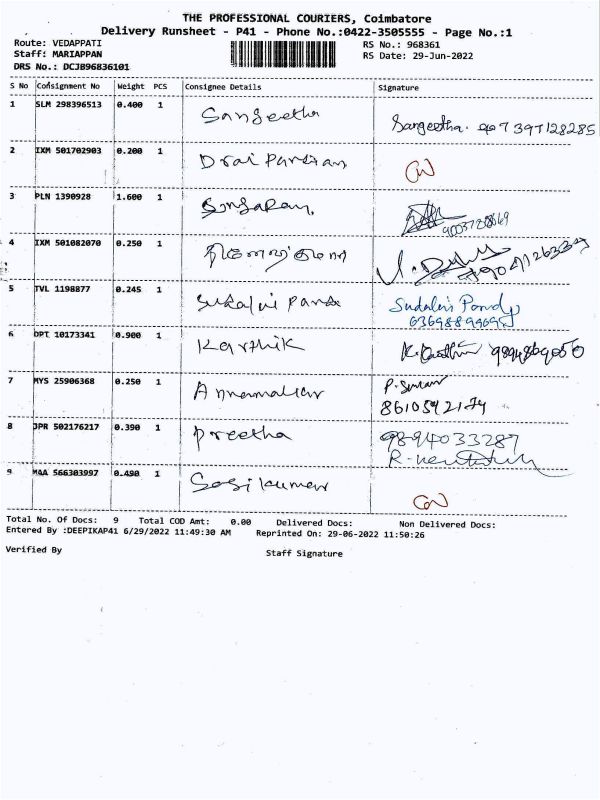 THE PROFESSIONAL COURIERS, Coimbatore
Delivery Runsheet - P41 - Phone No.:0422-3505555 - Page No.:1
Route: VEDAPPATI RS No.: 968361
Staff: MARIAPPAN RS Date: 29-Jun-2022
DRS No.: DCJB96836101
S No Consignment No Weight PCS Consignee Details Signature
1 SLM 298396513 0.400 1 Sangeetha Sangeetha.
2 IXM 501702903 0.200 1 Drai Pandian
3 PLN 1390928 1.600 1
4 IXM 501082070 0.250 1
5 TVL 1198877 0.245 1 Sudalai
6 DPT 10173341 0.900 1 Karthik
7 MYS 25906368 0.250 1 Annamalai
8610592174
8 JPR 502176217 0.390 1 Preetha 9894033287
9 MAA 566303997 0.490 1 Sasikumar
Total No. Of Docs: 9 Total COD Amt: 0.00 Delivered Docs: Non Delivered Docs:
Entered By :DEEPIKAP41 6/29/2022 11:49:30 AM Reprinted On: 29-06-2022 11:50:26
Verified By Staff Signature